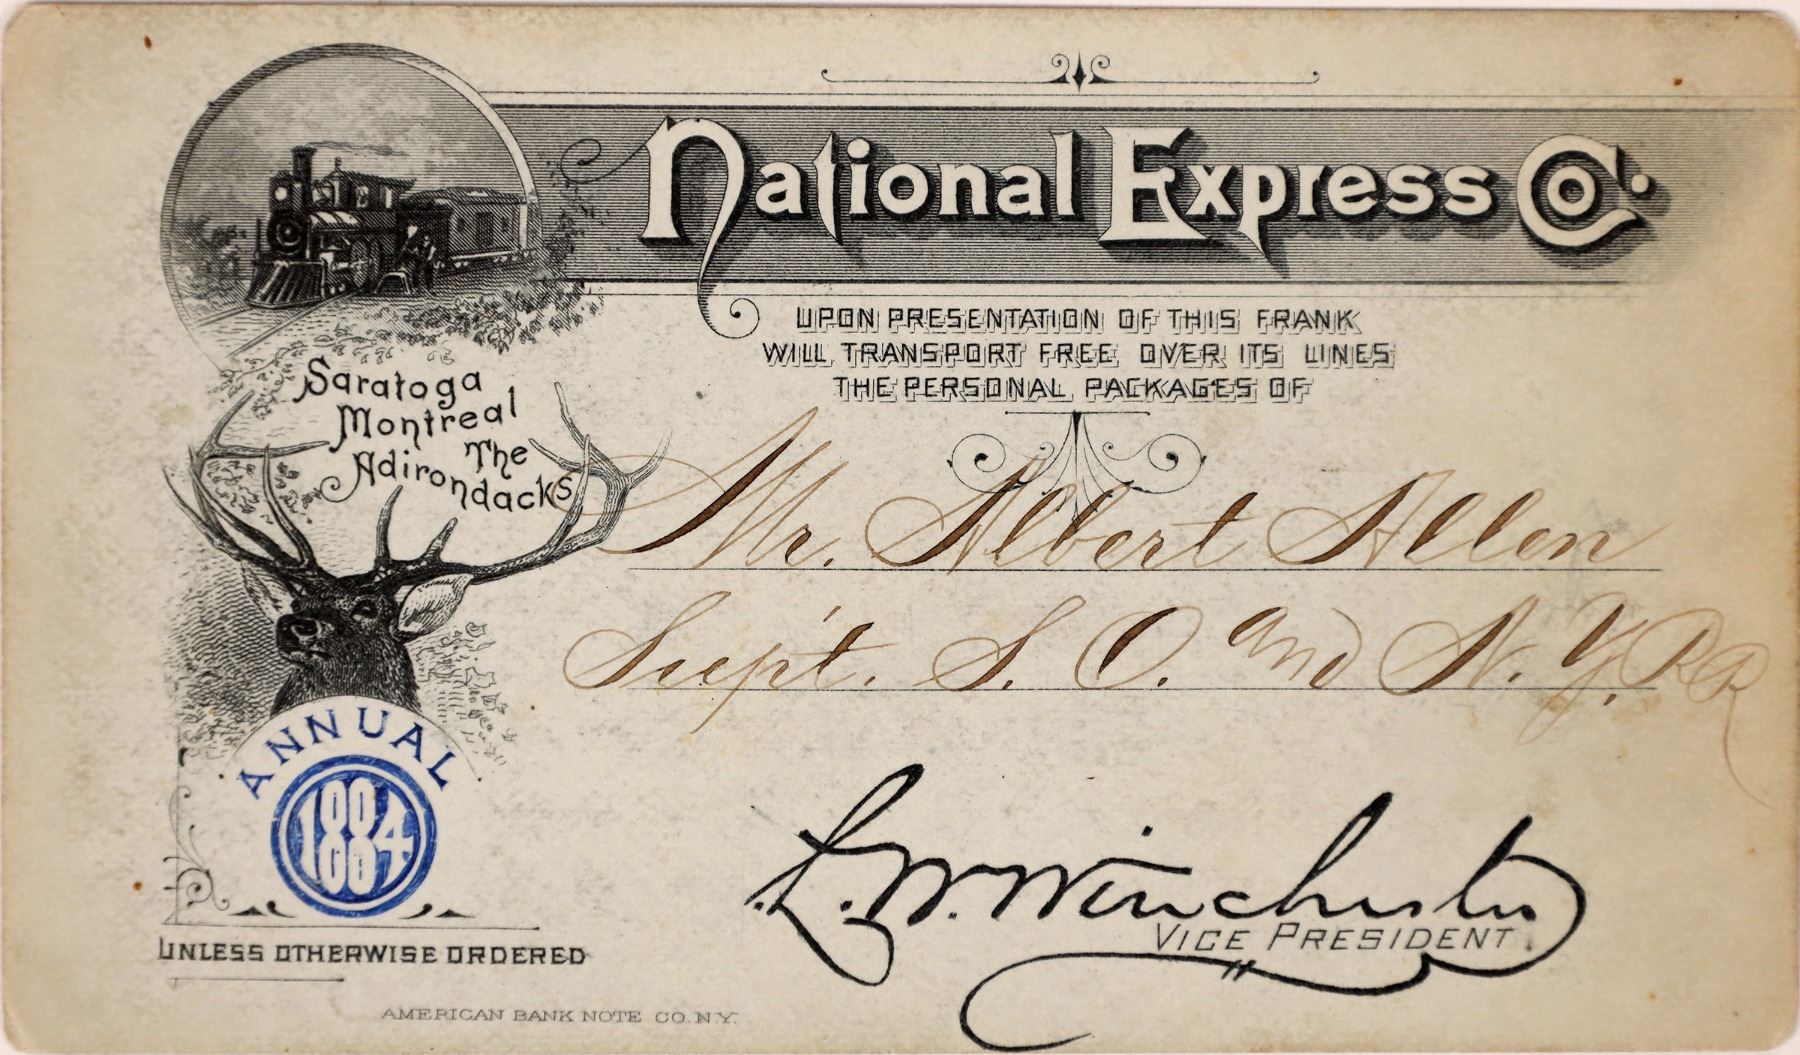 National Express Co.
UPON PRESENTATION OF THIS FRANK
WILL TRANSPORT FREE OVER ITS LINES
THE PERSONAL PACKAGES OF
Saratoga
Montreal
The
Adirondacks
Mr. Albert Allen
Sup't. S. O. and N. Y. RR
ANNUAL
1884
L. W. Winchester
VICE PRESIDENT.
UNLESS OTHERWISE ORDERED
AMERICAN BANK NOTE CO. N.Y.